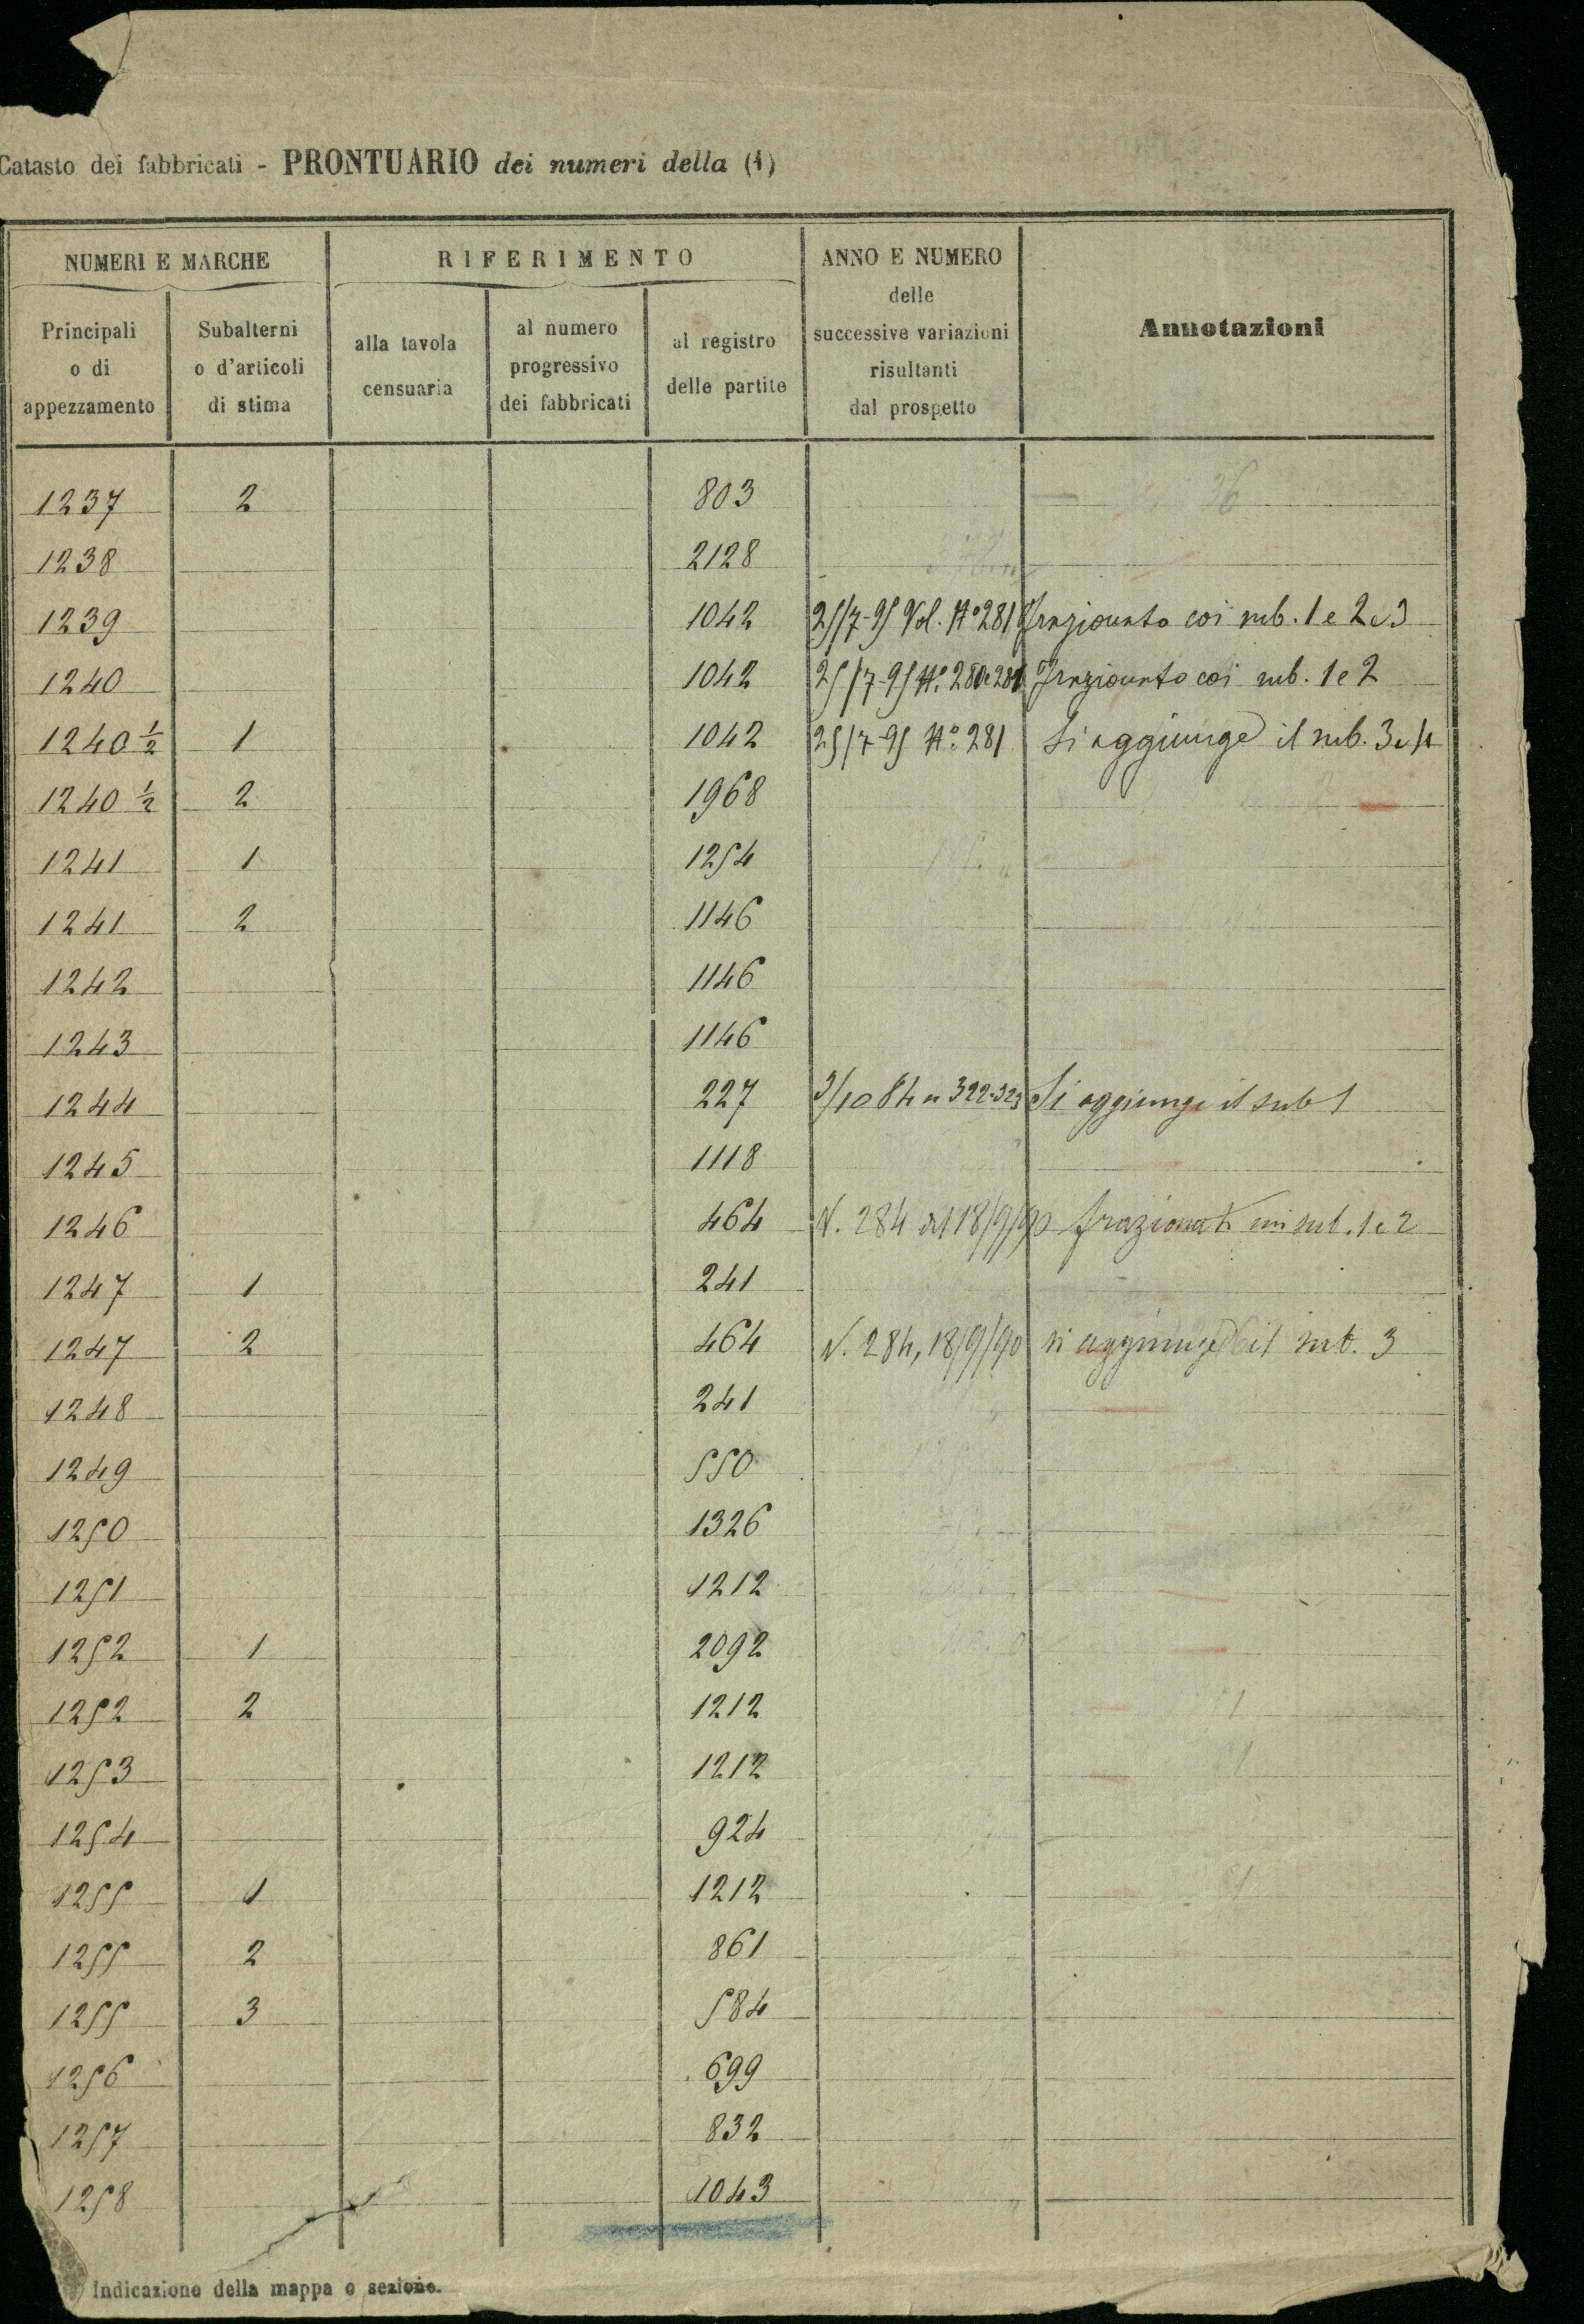 Catasto dei fabbricati - PRONTUARIO dei numeri della (1)
NUMERI E MARCHE RIFERIMENTO ANNO E NUMERO delle successive variazioni risultanti dal prospetto Annotazioni
Principali o di appezzamento Subalterni o d'articoli di stima alla tavola censuaria al numero progressivo dei fabbricati al registro delle partite
1237 2 803
1238 2128
1239 1042 25/7-95 Vol. N° 281 Frazionato coi sub. 1 e 2 e 3
1240 1042 25/7-95 N° 280 e 281 Frazionato coi sub. 1 e 2
1240 ½ 1 1042 25/7-95 N° 281 Si aggiunge il sub. 3 e 4
1240 ½ 2 1968
1241 1 1254
1241 2 1146
1242 1146
1243 1146
1244 227 3/10 84 n 322-323 Si aggiunge il sub 1
1245 1118
1246 464 N. 284 del 18/9/90 frazionato sub. 1 e 2
1247 1 241
1247 2 464 N. 284, 18/9/90 si aggiunge il sub. 3
1248 241
1249 550
1250 1326
1251 1212
1252 1 2092
1252 2 1212
1253 1212
1254 924
1255 1 1212
1255 2 861
1255 3 584
1256 699
1257 832
1258 1043
Indicazione della mappa o sezione.